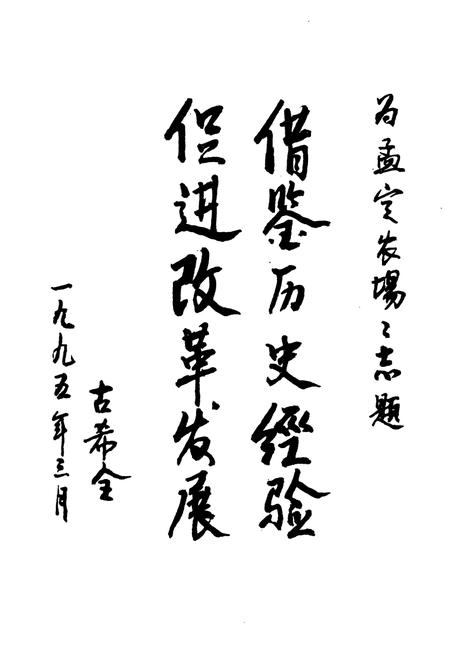 为孟定农場〻志题
借鉴历史經验
促进改革发展
古希全
一九九五年三月